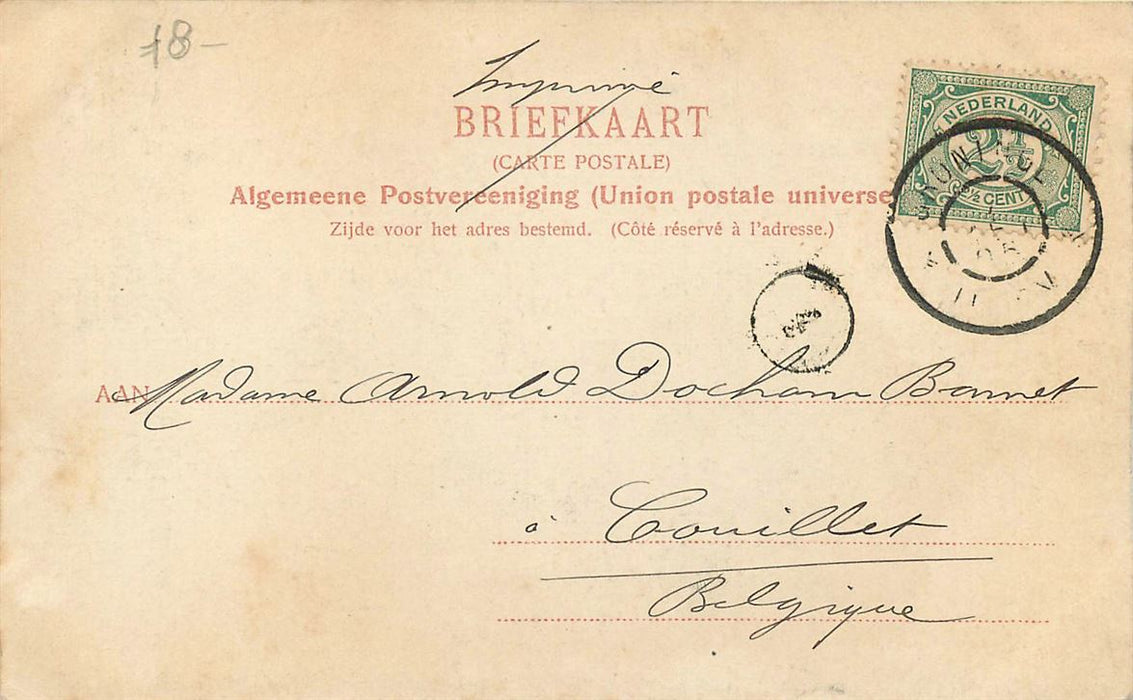 18-
Imprimé
BRIEFKAART
(CARTE POSTALE)
Algemeene Postvereeniging (Union postale universe
Zijde voor het adres bestemd. (Côté réservé à l'adresse.)
NEDERLAND
2½
2½ CENT
AAN Madame Arnold Docham Bannet
à Couillet
Belgique